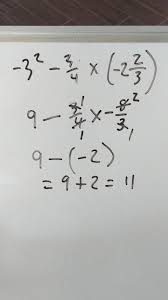 -3² - 3/4 × (-2 2/3)
9 - 3/4 1 1 × -8/3 2 1
9 - (-2)
= 9 + 2 = 11